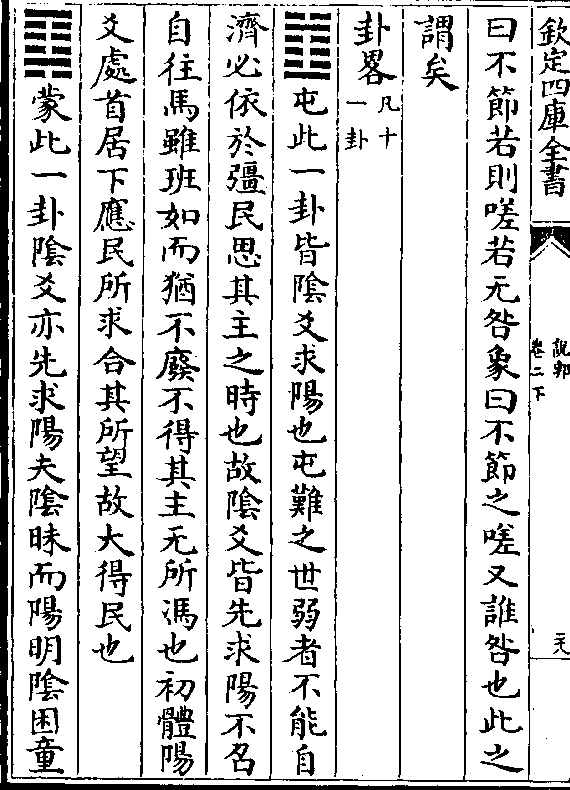 欽定四庫全書
說郛
卷二下
天
曰不節若則嗟若无咎象曰不節之嗟又誰咎也此之
謂矣
卦畧凡十一卦
䷂屯此一卦皆陰爻求陽也屯難之世弱者不能自
濟必依於彊民思其主之時也故陰爻皆先求陽不召
自往馬雖班如而猶不廢不得其主无所馮也初體陽
爻處首居下應民所求合其所望故大得民也
䷃蒙此一卦陰爻亦先求陽夫陰昧而陽明陰困童